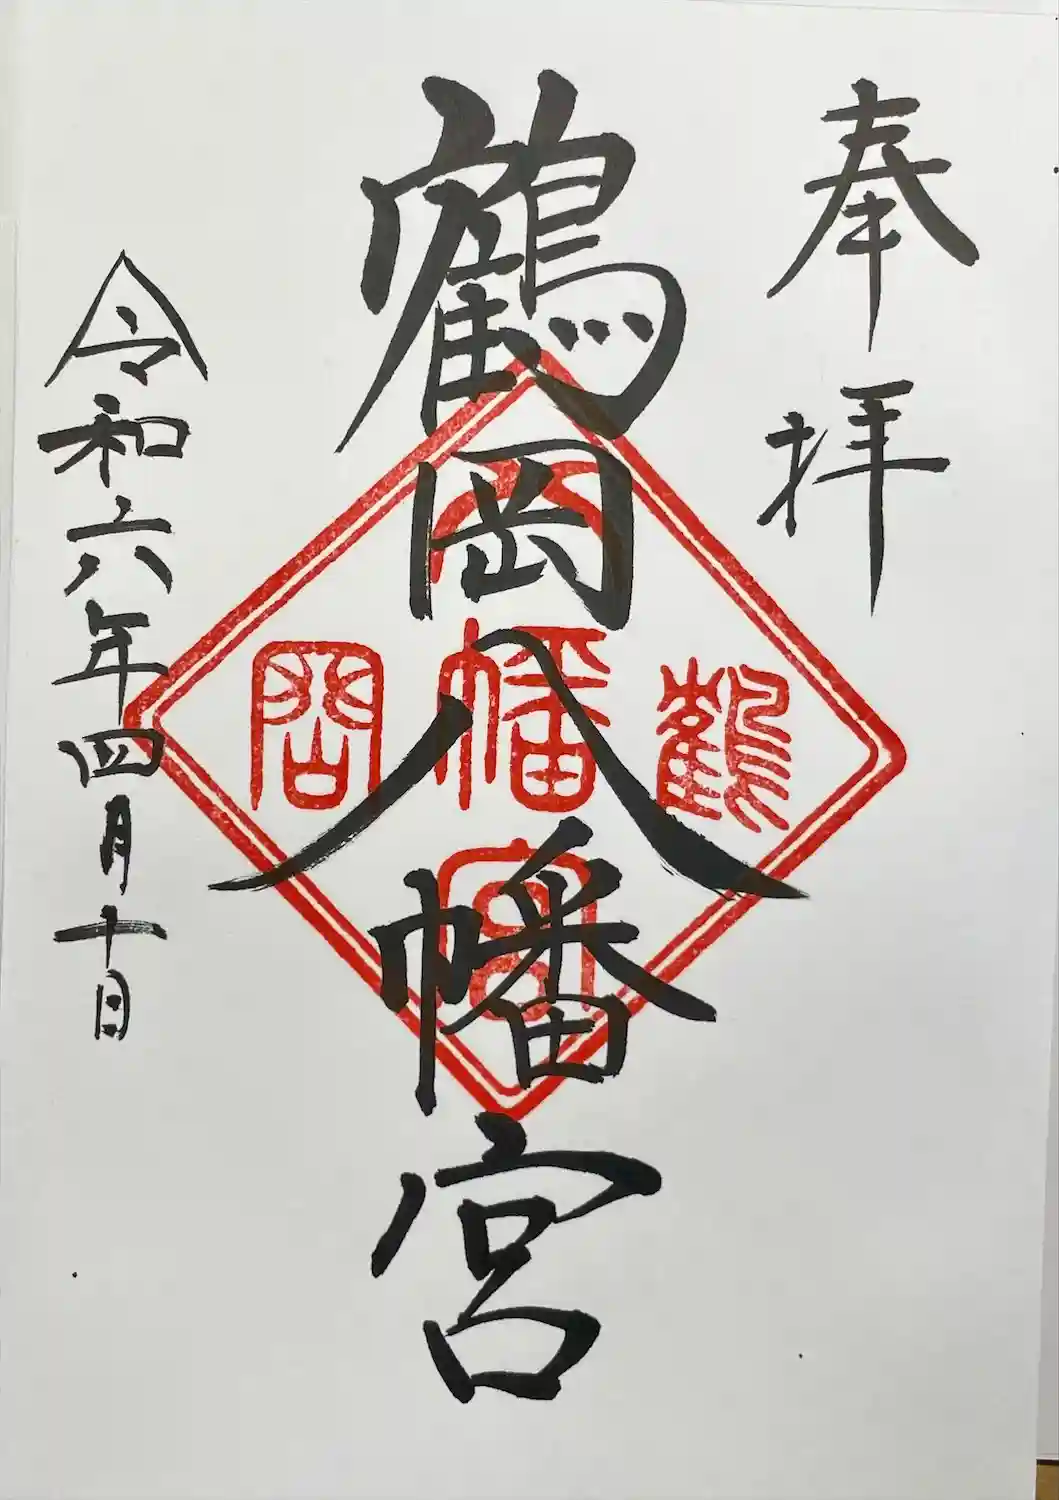 奉拝
鶴岡八幡宮
鶴岡八幡宮
令和六年四月十日